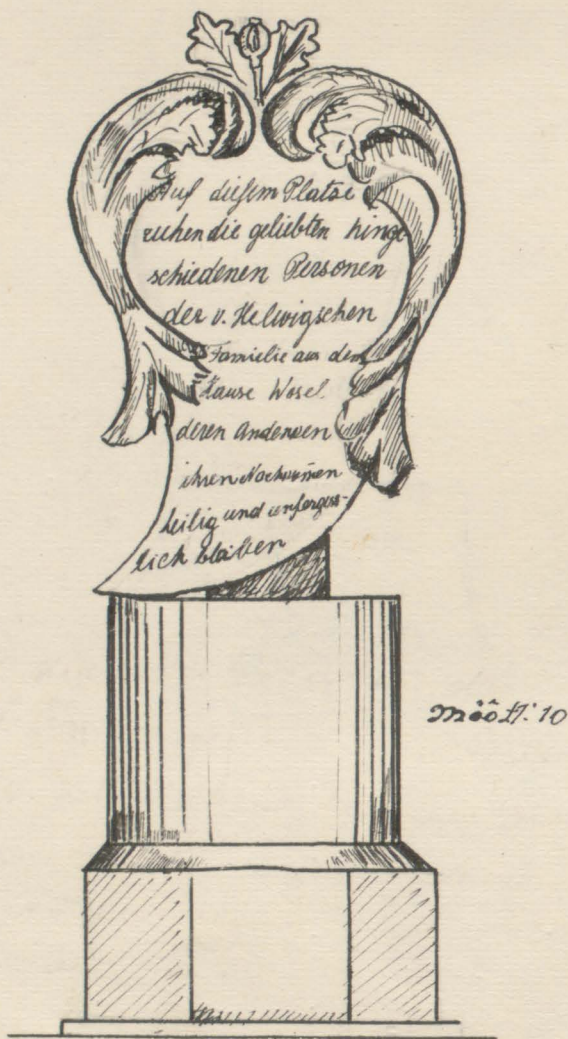 Auf diesem Platze
ruhen die geliebten hinge
schiedenen Personen
der v. Helwigschen
Familie aus dem
Hause Wosel
deren Andenken
ihren
heilig und unferges-
lich bleiben
Mõõt 1:10